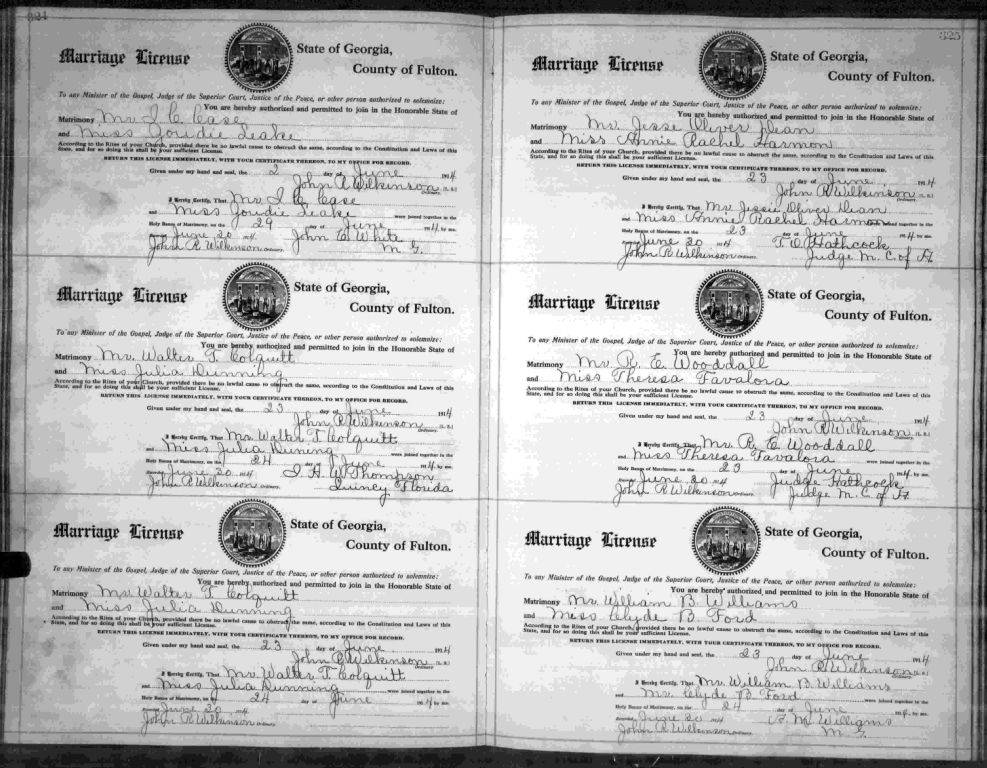 324
Marriage License
State of Georgia,
County of Fulton.
To any Minister of the Gospel, Judge of the Superior Court, Justice of the Peace, or other person authorized to solemnize:
You are hereby authorized and permitted to join in the Honorable State of
Matrimony Mr I C Case
and Miss Goudie Leake
According to the Rites of your Church, provided there be no lawful cause to obstruct the same, according to the Constitution and Laws of this
State, and for so doing this shall be your sufficient License.
RETURN THIS LICENSE IMMEDIATELY, WITH YOUR CERTIFICATE THEREON, TO MY OFFICE FOR RECORD.
Given under my hand and seal, the 2 day of June 1914
John R Wilkinson (L. S.)
Ordinary.
I Hereby Certify, That Mr I C Case
and Miss Goudie Leake were joined together in the
Holy Banns of Matrimony, on the 29 day of June 1914, by me.
June 30 1914 John E White
John R Wilkinson Ordinary. M. G.
Marriage License
State of Georgia,
County of Fulton.
To any Minister of the Gospel, Judge of the Superior Court, Justice of the Peace, or other person authorized to solemnize:
You are hereby authorized and permitted to join in the Honorable State of
Matrimony Mr. Walter T. Colquitt
and Miss Julia Dunning
According to the Rites of your Church, provided there be no lawful cause to obstruct the same, according to the Constitution and Laws of this
State, and for so doing this shall be your sufficient License.
RETURN THIS LICENSE IMMEDIATELY, WITH YOUR CERTIFICATE THEREON, TO MY OFFICE FOR RECORD.
Given under my hand and seal, the 23 day of June 1914
John R Wilkinson (L. S.)
Ordinary.
I Hereby Certify, That Mr Walter T Colquitt
and Miss Julia Duning were joined together in the
Holy Banns of Matrimony, on the 24 day of June 1914, by me.
June 30 1914 I. H. W Thompson
John R Wilkinson Ordinary. Quincy Florida
Marriage License
State of Georgia,
County of Fulton.
To any Minister of the Gospel, Judge of the Superior Court, Justice of the Peace, or other person authorized to solemnize:
You are hereby authorized and permitted to join in the Honorable State of
Matrimony Mr Walter T Colquitt
and Miss Julia Dunning
According to the Rites of your Church, provided there be no lawful cause to obstruct the same, according to the Constitution and Laws of this
State, and for so doing this shall be your sufficient License.
RETURN THIS LICENSE IMMEDIATELY, WITH YOUR CERTIFICATE THEREON, TO MY OFFICE FOR RECORD.
Given under my hand and seal, the 23 day of June 1914
John R Wilkinson (L. S.)
Ordinary.
I Hereby Certify, That Mr Walter T Colquitt
and Miss Julia Dunning were joined together in the
Holy Banns of Matrimony, on the 24 day of June 1914 by me.
June 30 1914
John R Wilkinson Ordinary.
325
Marriage License
State of Georgia,
County of Fulton.
To any Minister of the Gospel, Judge of the Superior Court, Justice of the Peace, or other person authorized to solemnize:
You are hereby authorized and permitted to join in the Honorable State of
Matrimony Mr. Jesse Oliver Dean
and Miss Annie Rachel Harmon
According to the Rites of your Church, provided there be no lawful cause to obstruct the same, according to the Constitution and Laws of this
State, and for so doing this shall be your sufficient License.
RETURN THIS LICENSE IMMEDIATELY, WITH YOUR CERTIFICATE THEREON, TO MY OFFICE FOR RECORD.
Given under my hand and seal, the 23 day of June 1914
John R Wilkinson (L. S.)
Ordinary.
I Hereby Certify, That Mr Jessie Oliver Dean
and Miss Annie Rachel Harmon were joined together in the
Holy Banns of Matrimony, on the 23 day of June 1914, by me.
June 30 1914 T. O. Hathcock
John R Wilkinson Ordinary. Judge M. C. of A
Marriage License
State of Georgia,
County of Fulton.
To any Minister of the Gospel, Judge of the Superior Court, Justice of the Peace, or other person authorized to solemnize:
You are hereby authorized and permitted to join in the Honorable State of
Matrimony Mr. R. E. Wooddall
and Miss Theresa Favalora
According to the Rites of your Church, provided there be no lawful cause to obstruct the same, according to the Constitution and Laws of this
State, and for so doing this shall be your sufficient License.
RETURN THIS LICENSE IMMEDIATELY, WITH YOUR CERTIFICATE THEREON, TO MY OFFICE FOR RECORD.
Given under my hand and seal, the 23 day of June 1914
John R Wilkinson (L. S.)
Ordinary.
I Hereby Certify, That Mr R. E Wooddall
and Miss Theresa Favalora were joined together in the
Holy Banns of Matrimony, on the 23 day of June 1914, by me.
June 30 1914 Judge Hathcock
John R Wilkinson Ordinary. Judge M. C. of A
Marriage License
State of Georgia,
County of Fulton.
To any Minister of the Gospel, Judge of the Superior Court, Justice of the Peace, or other person authorized to solemnize:
You are hereby authorized and permitted to join in the Honorable State of
Matrimony Mr. William B. Williams
and Miss Clyde B Ford
According to the Rites of your Church, provided there be no lawful cause to obstruct the same, according to the Constitution and Laws of this
State, and for so doing this shall be your sufficient License.
RETURN THIS LICENSE IMMEDIATELY, WITH YOUR CERTIFICATE THEREON, TO MY OFFICE FOR RECORD.
Given under my hand and seal, the 23 day of June 1914
John R Wilkinson (L. S.)
Ordinary.
I Hereby Certify, That Mr. William B Williams
and Mr. Clyde B Ford were joined together in the
Holy Banns of Matrimony, on the 24 day of June 1914, by me.
June 30 1914 A. M. Williams
John R Wilkinson Ordinary. M G.